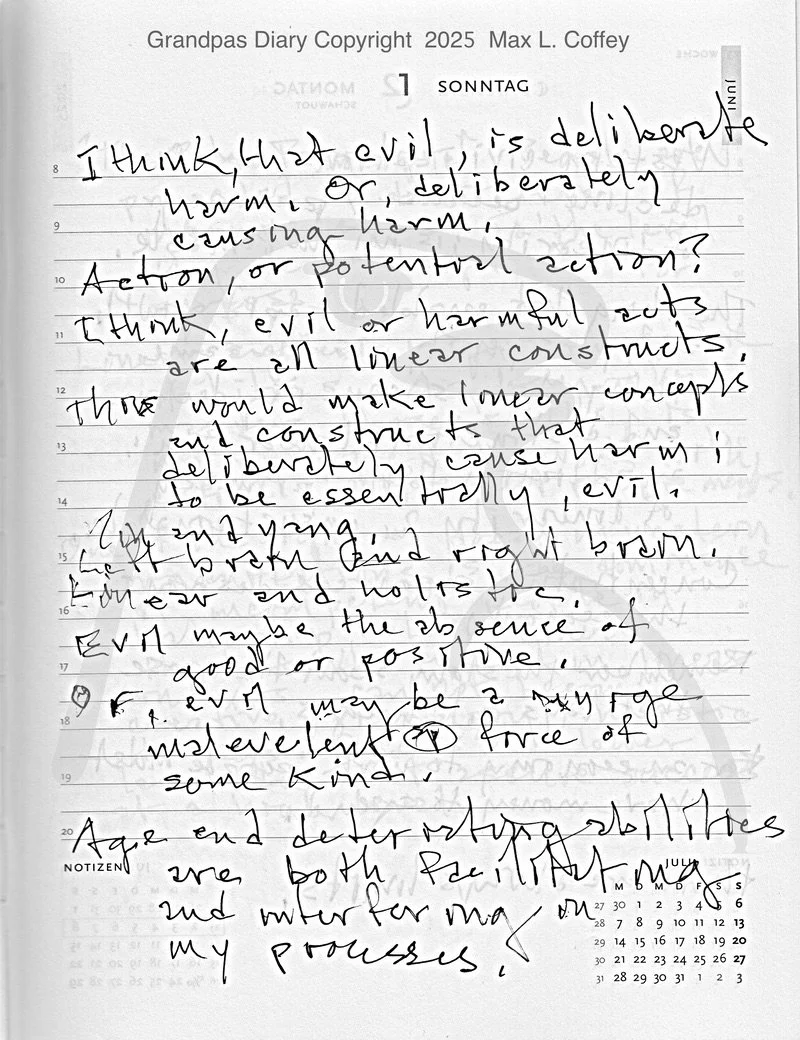 Grandpas Diary Copyright 2025 Max L. Coffey
1 SONNTAG
JUNI
8 I think, that evil, is deliberate
harm. Or, deliberately
9 causing harm.
10 Action, or potential action?
11 I think, evil or harmful acts
are all linear constructs.
12 This would make linear concepts
13 and constructs that
deliberately cause harm;
14 to be essentially, evil.
Yin and yang.
15 Left brain and right brain.
Linear and holistic.
16 Evil maybe the absence of
17 good or positive.
Or, evil may be a
18 malevelent force of
19 some kind.
20 Age and deteriating abilities
NOTIZEN are both facilitating
and interfering on
my processes.
JULI
M D M D F S S
27 30 1 2 3 4 5 6
28 7 8 9 10 11 12 13
29 14 15 16 17 18 19 20
30 21 22 23 24 25 26 27
31 28 29 30 31 1 2 3